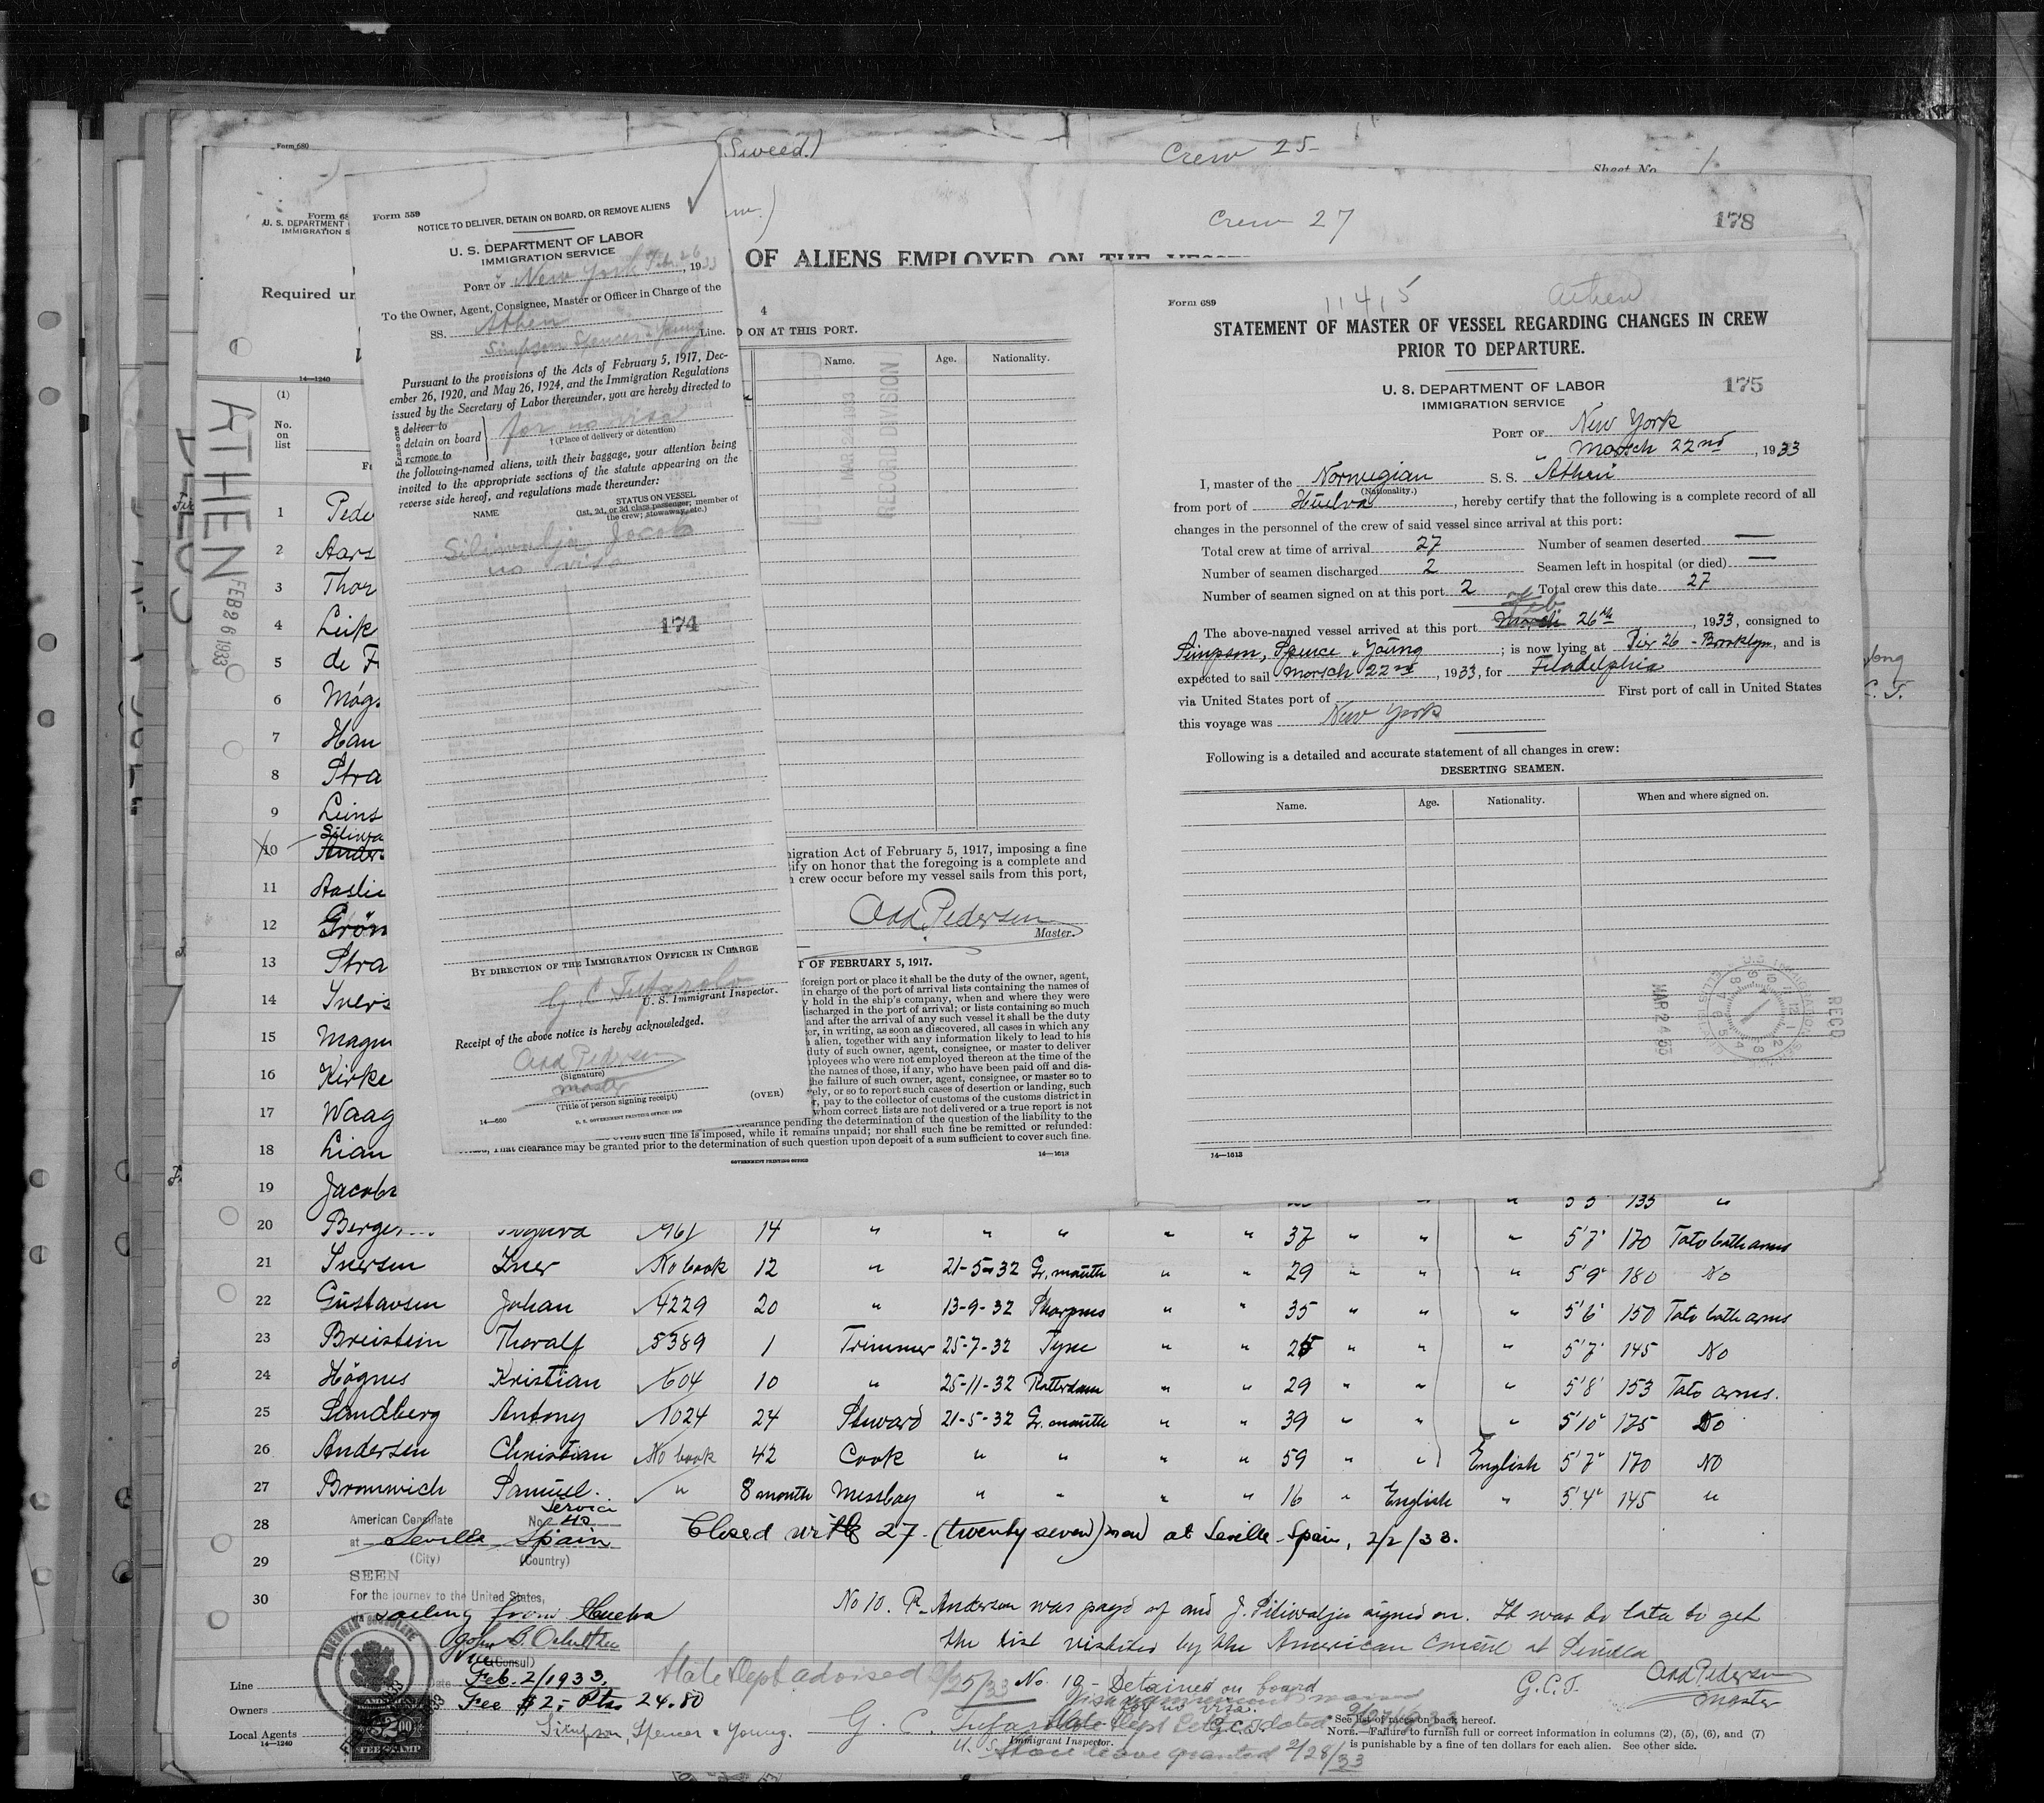 Form 680
(Sweed.)
Crew 25
Sheet No. 1
Crew 27
178
U. S. DEPARTMENT
IMMIGRATION S
OF ALIENS EMPLOYED ON THE
Required un
14—1240
ATHEN
FEB 26 1933
(1)
No. on list
Form 559
NOTICE TO DELIVER, DETAIN ON BOARD, OR REMOVE ALIENS
U. S. DEPARTMENT OF LABOR
IMMIGRATION SERVICE
PORT OF New York Feb. 26, 1933
To the Owner, Agent, Consignee, Master or Officer in Charge of the
SS. Athen
Simpson Spencer & Young Line.
Pursuant to the provisions of the Acts of February 5, 1917, Dec-
ember 26, 1920, and May 26, 1924, and the Immigration Regulations
issued by the Secretary of Labor thereunder, you are hereby directed to
Erase one
deliver to
detain on board
remove to
for no visa
† (Place of delivery or detention)
the following-named aliens, with their baggage, your attention being
invited to the appropriate sections of the statute appearing on the
reverse side hereof, and regulations made thereunder:
NAME
STATUS ON VESSEL
(1st, 2d, or 3d class passenger; member of
the crew; stowaway, etc.)
Siliwalja Jacob
no visa
174
BY DIRECTION OF THE IMMIGRATION OFFICER IN CHARGE
G C Tufarolo
U. S. Immigrant Inspector.
Receipt of the above notice is hereby acknowledged.
Odd Pedersen
(Signature)
master
(Title of person signing receipt)
(OVER)
14—630
U. S. GOVERNMENT PRINTING OFFICE: 1930
4
D ON AT THIS PORT.
Name. Age. Nationality.
MAR 24 1933
RECORD DIVISION
migration Act of February 5, 1917, imposing a fine
ify on honor that the foregoing is a complete and
crew occur before my vessel sails from this port,
Odd Pedersen
Master.
T OF FEBRUARY 5, 1917.
foreign port or place it shall be the duty of the owner, agent,
in charge of the port of arrival lists containing the names of
y hold in the ship's company, when and where they were
ischarged in the port of arrival; or lists containing so much
and after the arrival of any such vessel it shall be the duty
er, in writing, as soon as discovered, all cases in which any
alien, together with any information likely to lead to his
duty of such owner, agent, consignee, or master to deliver
ployees who were not employed thereon at the time of the
the names of those, if any, who have been paid off and dis-
he failure of such owner, agent, consignee, or master so to
ely, or so to report such cases of desertion or landing, such
r, pay to the collector of customs of the customs district in
whom correct lists are not delivered or a true report is not
clearance pending the determination of the question of the liability to the
event such fine is imposed, while it remains unpaid; nor shall such fine be remitted or refunded:
That clearance may be granted prior to the determination of such question upon deposit of a sum sufficient to cover such fine.
GOVERNMENT PRINTING OFFICE
14—1613
Form 689
11415
Athen
STATEMENT OF MASTER OF VESSEL REGARDING CHANGES IN CREW
PRIOR TO DEPARTURE.
U. S. DEPARTMENT OF LABOR
IMMIGRATION SERVICE
175
PORT OF New York
Marsch 22nd, 1933
I, master of the Norwegian S. S. Athen
(Nationality.)
from port of Hüelva, hereby certify that the following is a complete record of all
changes in the personnel of the crew of said vessel since arrival at this port:
Total crew at time of arrival 27 Number of seamen deserted —
Number of seamen discharged 2 Seamen left in hospital (or died) —
Number of seamen signed on at this port 2 Total crew this date 27
The above-named vessel arrived at this port Feb 26th, 1933, consigned to
Simpson, Spence & Young; is now lying at Pier 26 - Brooklyn, and is
expected to sail Marsch 22nd, 1933, for Filadelphia
via United States port of First port of call in United States
this voyage was New York
Following is a detailed and accurate statement of all changes in crew:
DESERTING SEAMEN.
Name. Age. Nationality. When and where signed on.
MAR 24 '33
RECD
14—1613
1 Pede
2 Aars
3 Thor
4 Leik
5 de F
6
7 Han
8 Stra
9 Leins
Siliwa
10 Anders
11 Aaslie
12 Grön
13 Stra
14 Ivers
15 Magn
16 Kirke
17 Waag
18 Lian
19 Jacobs 135 "
20 Berge 961 14 " " " " " 37 " " " 5'7" 170 Tato both arms
21 Iversen Iver No book 12 " 21-5-32 Gr. mouth " " 29 " " " 5'9" 180 No
22 Gustavsen Johan 4229 20 " 13-9-32 Sharpnes " " 35 " " 5'6" 150 Tato both arms
23 Breistein Thoralf 5389 1 Trimmer 25-7-32 Tyne " " 25 " " " 5'7" 145 No
24 Högnes Kristian 604 10 " 25-11-32 Rotterdam " " 29 " " " 5'8" 153 Tato arms.
25 Sandberg Antony 1024 24 Steward 21-5-32 Gr. mouth " " 39 " " " 5'10" 175 No
26 Andersen Christian No book 42 Cook " " " " 59 " " English 5'7" 170 No
27 Bromwich Samuel " 8 month Messboy " " " " 16 " English " 5'4" 145 "
28 Closed with 27 (twenty seven) men at Seville - Spain, 2/2/33.
29
30
American Consulate
Service No. 40
at Sevilla Spain
(City) (Country)
SEEN
For the journey to the United States,
sailing from Huelva
(Consul)
Feb. 2/1933
Fee $2,- Pts 24.80
AMERICAN CONSULATE
$2.00
FEE STAMP
No 10. P. Anderson was payd of and J. Siliwalja signed on. It was to late to get
the list visited by the American Consul at Sevilla
Odd Pedersen
master
State Dept advised 2/25/33
No. 10 - Detained on board
for no visa.
G.C.T.
G. C. Tufarolo
U. S. Immigrant Inspector.
Shore leave granted 2/28/33
Line
Owners
Local Agents Simpson, Spencer & Young.
14—1240
See list of races on back hereof.
NOTE.—Failure to furnish full or correct information in columns (2), (5), (6), and (7)
is punishable by a fine of ten dollars for each alien. See other side.